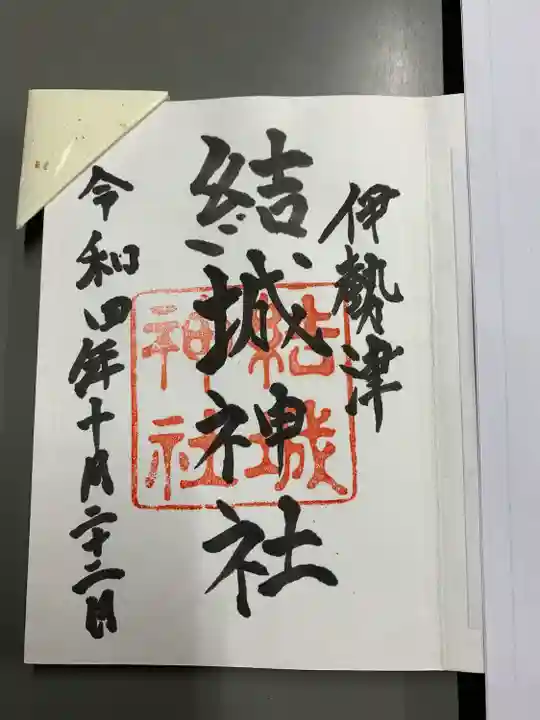 伊勢津
結城神社
結城神社
令和四年十月二十二日